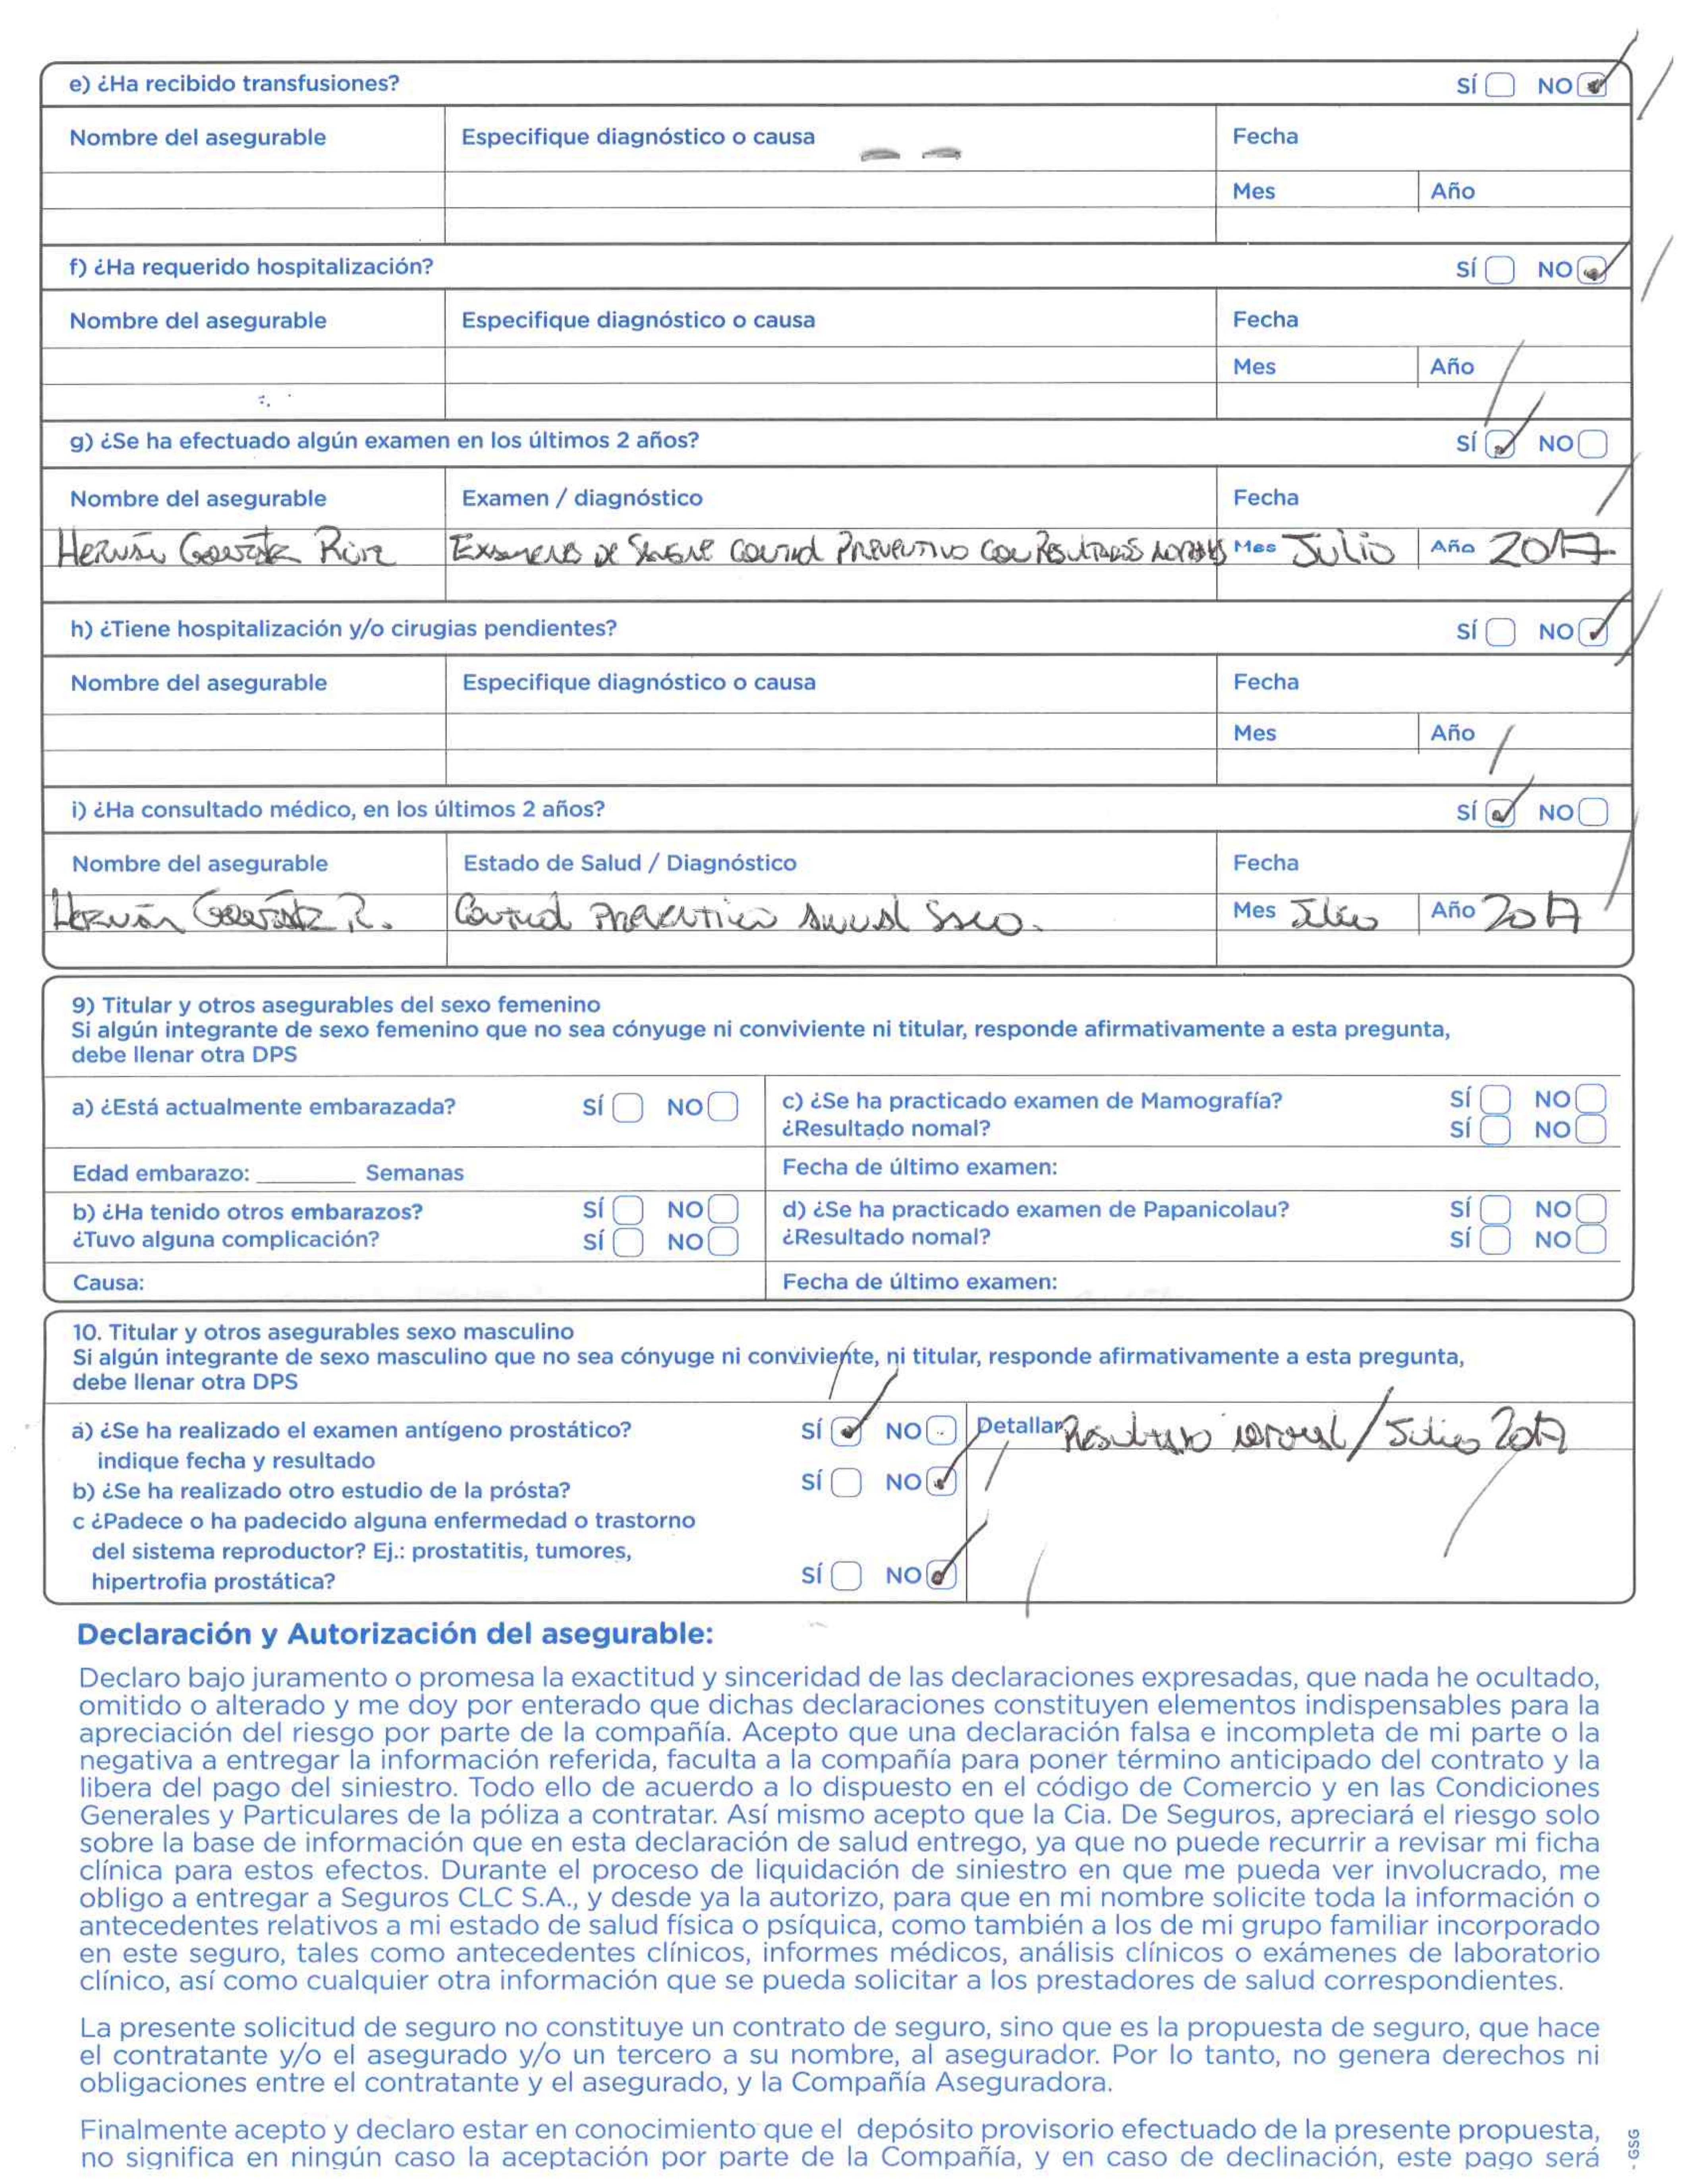 e) ¿Ha recibido transfusiones? SÍ NO
Nombre del asegurable Especifique diagnóstico o causa Fecha
Mes Año
f) ¿Ha requerido hospitalización? SÍ NO
Nombre del asegurable Especifique diagnóstico o causa Fecha
Mes Año
g) ¿Se ha efectuado algún examen en los últimos 2 años? SÍ NO
Nombre del asegurable Examen / diagnóstico Fecha
Hernán González Exámenes de Sangre Control Preventivo con Resultados Mes Julio Año 2017
h) ¿Tiene hospitalización y/o cirugias pendientes? SÍ NO
Nombre del asegurable Especifique diagnóstico o causa Fecha
Mes Año
i) ¿Ha consultado médico, en los últimos 2 años? SÍ NO
Nombre del asegurable Estado de Salud / Diagnóstico Fecha
Hernán González R. Control Preventivo Anual Sano. Mes Julio Año 2017
9) Titular y otros asegurables del sexo femenino
Si algún integrante de sexo femenino que no sea cónyuge ni conviviente ni titular, responde afirmativamente a esta pregunta,
debe llenar otra DPS
a) ¿Está actualmente embarazada? SÍ NO c) ¿Se ha practicado examen de Mamografía? SÍ NO
¿Resultado nomal? SÍ NO
Edad embarazo: ________ Semanas Fecha de último examen:
b) ¿Ha tenido otros embarazos? SÍ NO d) ¿Se ha practicado examen de Papanicolau? SÍ NO
¿Tuvo alguna complicación? SÍ NO ¿Resultado nomal? SÍ NO
Causa: Fecha de último examen:
10. Titular y otros asegurables sexo masculino
Si algún integrante de sexo masculino que no sea cónyuge ni conviviente, ni titular, responde afirmativamente a esta pregunta,
debe llenar otra DPS
a) ¿Se ha realizado el examen antígeno prostático? SÍ NO Detallar Resultado normal / Julio 2017
indique fecha y resultado
b) ¿Se ha realizado otro estudio de la prósta? SÍ NO
c ¿Padece o ha padecido alguna enfermedad o trastorno
del sistema reproductor? Ej.: prostatitis, tumores,
hipertrofia prostática? SÍ NO
Declaración y Autorización del asegurable:
Declaro bajo juramento o promesa la exactitud y sinceridad de las declaraciones expresadas, que nada he ocultado,
omitido o alterado y me doy por enterado que dichas declaraciones constituyen elementos indispensables para la
apreciación del riesgo por parte de la compañía. Acepto que una declaración falsa e incompleta de mi parte o la
negativa a entregar la información referida, faculta a la compañía para poner término anticipado del contrato y la
libera del pago del siniestro. Todo ello de acuerdo a lo dispuesto en el código de Comercio y en las Condiciones
Generales y Particulares de la póliza a contratar. Así mismo acepto que la Cia. De Seguros, apreciará el riesgo solo
sobre la base de información que en esta declaración de salud entrego, ya que no puede recurrir a revisar mi ficha
clínica para estos efectos. Durante el proceso de liquidación de siniestro en que me pueda ver involucrado, me
obligo a entregar a Seguros CLC S.A., y desde ya la autorizo, para que en mi nombre solicite toda la información o
antecedentes relativos a mi estado de salud física o psíquica, como también a los de mi grupo familiar incorporado
en este seguro, tales como antecedentes clínicos, informes médicos, análisis clínicos o exámenes de laboratorio
clínico, así como cualquier otra información que se pueda solicitar a los prestadores de salud correspondientes.
La presente solicitud de seguro no constituye un contrato de seguro, sino que es la propuesta de seguro, que hace
el contratante y/o el asegurado y/o un tercero a su nombre, al asegurador. Por lo tanto, no genera derechos ni
obligaciones entre el contratante y el asegurado, y la Compañía Aseguradora.
Finalmente acepto y declaro estar en conocimiento que el depósito provisorio efectuado de la presente propuesta,
no significa en ningún caso la aceptación por parte de la Compañía, y en caso de declinación, este pago será
- GSG